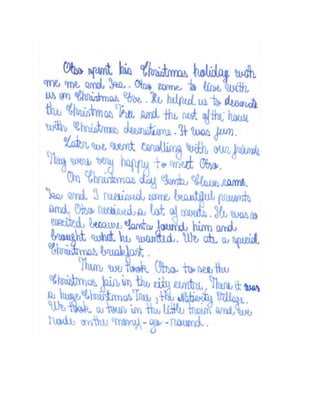 Otso spent his Christmas holiday with
me me and Isa. Otso came to live with
us on Christmas Eve. He helped us to decorate
the Christmas Tree and the rest of the house
with Christmas decorations. It was fun.
Later we went carolling with our friends
They were very happy to meet Otso.
On Christmas day Santa Claus came.
Isa and I received some beautiful presents
and Otso received a lot of sweets. He was so
excited, because Santa found him and
brought what he wanted. We ate a special
Christmas breakfast.
Then we took Otso to see the
Christmas fair in the city centre. There it was
a huge Christmas Tree, the Nativity Village.
We took a tour in the little train and we
rode on the merry-go-round.